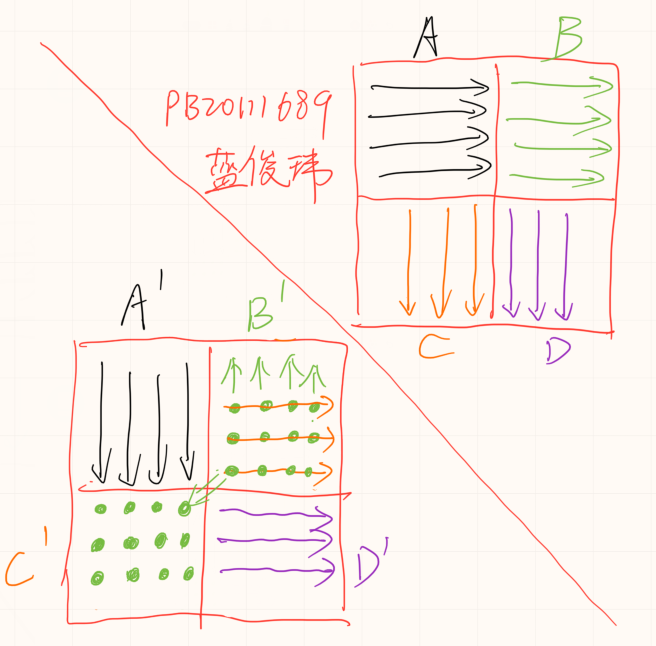 A B
PB20111689
蓝俊玮
C D
A' B'
C' D'